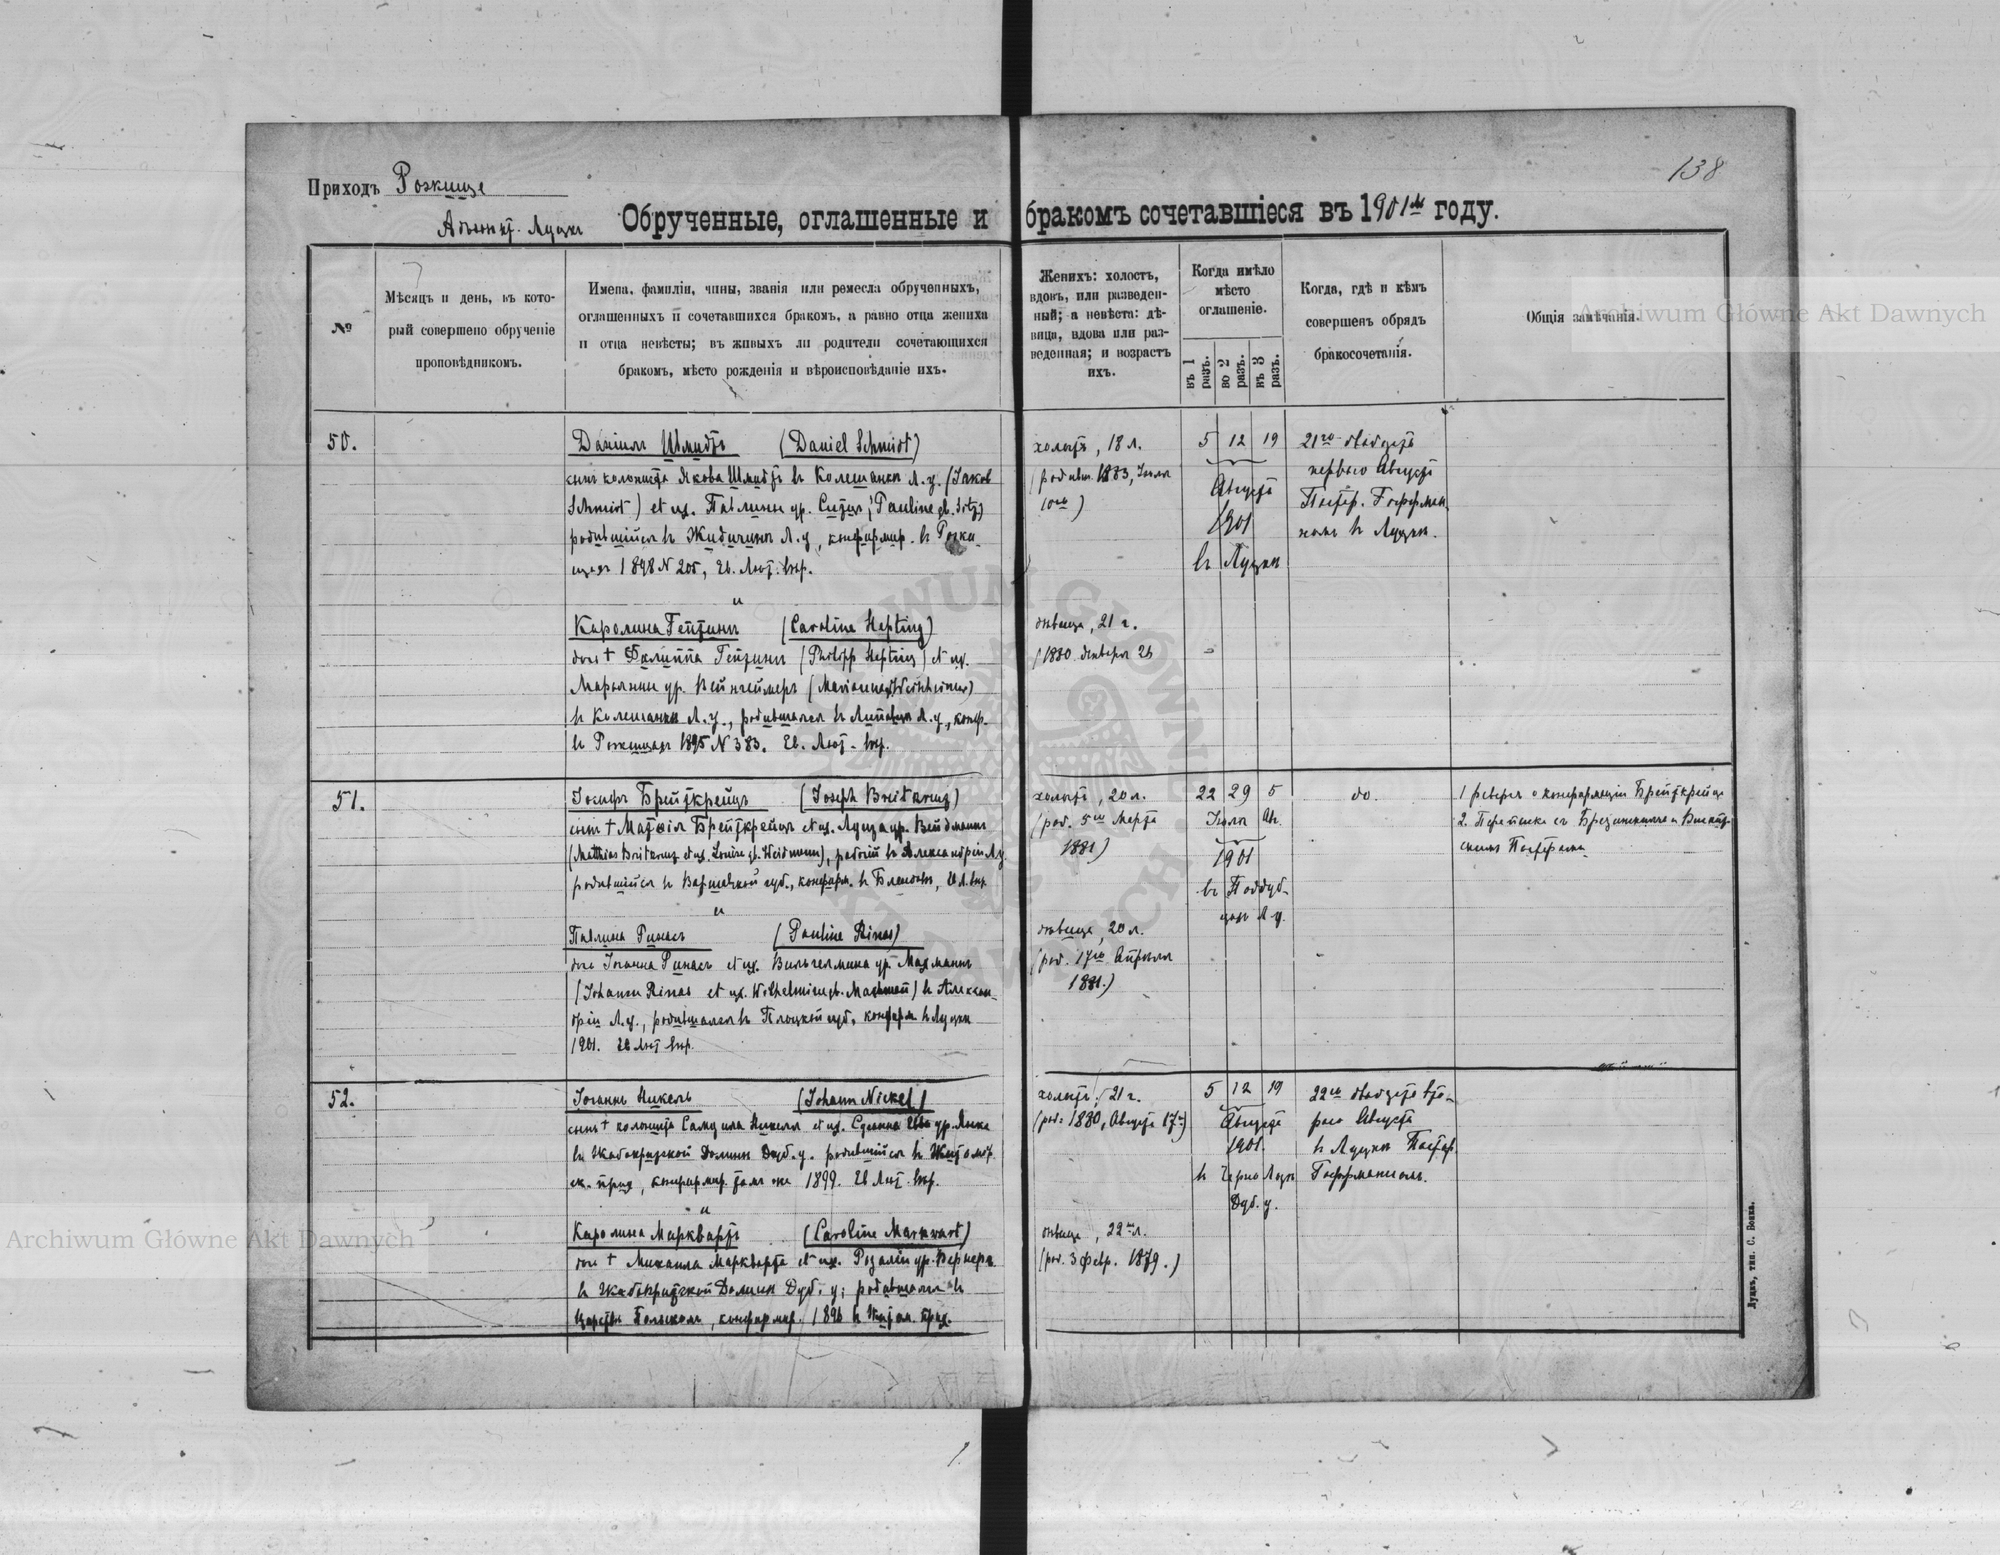 138
Приходъ Рожище
Адъюнкт. Луцкъ
Обрученные, оглашенные и бракомъ сочетавшіеся въ 1901 году.
№
Мѣсяцъ и день, въ кото-
рый совершено обрученіе
проповѣдникомъ.
Имена, фамиліи, чины, званія или ремесла обрученныхъ,
оглашенныхъ и сочетавшихся бракомъ, а равно отца жениха
и отца невѣсты; въ живыхъ ли родители сочетающихся
бракомъ, мѣсто рожденія и вѣроисповѣданіе ихъ.
Женихъ: холостъ,
вдовъ, или разведен-
ный; а невѣста: дѣ-
вица, вдова или раз-
веденная; и возрастъ
ихъ.
Когда имѣло
мѣсто
оглашеніе.
въ 1 разъ.
во 2 разъ.
въ 3 разъ.
Когда, гдѣ и кѣмъ
совершенъ обрядъ
бракосочетанія.
Общія замѣчанія.
50.
Даніилъ Шмидтъ (Daniel Schmidt)
сынъ колониста Якова Шмидтъ въ Колешанки Л. у. (Jakob
Schmidt) et ux. Павлины ур. (Pauline gb.
родившійся въ Жидичинъ Л. у., конфирмир. въ Рожи-
щахъ 1898 N 205, Ев. Лют. вѣр.
и
Каролина Гептингъ (Caroline Hepting)
дочь † Филиппа Гептингъ (Philipp Hepting) et ux.
Марьянны ур. Вейнгеймеръ (Marianna Weinheimer)
въ Колешанки Л. у., родившаяся въ Л. у., конф.
въ Рожищахъ 1895 N 383. Ев. Лют. вѣр.
холостъ, 18 л.
(родивш. 1883, Іюля
10го)
дѣвица, 21 г.
(1880 декабря 26
5 12 19
Августъ
1901
въ Луцкѣ
21го двадцать
перваго Августа
Пастор. Гофман-
номъ въ Луцкѣ.
51.
Іосифъ Брейткрейцъ (Joseph Breitkreuz)
сынъ † Матвія Брейткрейцъ et ux. Луиза ур. Вейдманнъ
(Matthias Breitkreuz et ux. Louise gb. Weidmann), рабочій въ Александріи Л. у.
родившійся въ Варшавской губ., конфирм. въ
и
Павлина Ринасъ (Pauline Rinas)
дочь Іоганна Ринасъ et ux. Вильгелмина ур. Махманъ
(Johann Rinas et ux. Wilhelmine gb. въ Алексан-
дріи Л. у., родившаяся въ Плоцкой губ., конфирм. въ Луцкѣ
1901. Ев. Лют. вѣр.
холостъ, 20 л.
(род. 5го Марта
1881)
дѣвица, 20 л.
(род. 17го Апрѣля
1881.)
22 29 5
Іюля Ав.
1901
въ Поддуб-
цахъ Л. у.
do.
1 о конфирмаціи Брейткрейца
2. Переписка съ
52.
Іоганнъ Никель (Johann Nickel)
сынъ † колониста Самуила Никеля et ux. Сусанна ур. Янке
въ Жабокрицкой Долинѣ Дуб. у. родившійся въ Житомір-
ск. прих., конфирмир. тамъ же 1899. Ев. Лют. вѣр.
и
Каролина Марквартъ (Caroline Markwart)
дочь † Михаила Маркварта et ux. Розаліи ур. Вернеръ
въ Жабокрицкой Долинѣ Дуб. у; родившаяся въ
Царствѣ Польскомъ, конфирмир. 1896 въ Житом. прих.
холостъ, 21 г.
(род. 1880, Августа 17го)
дѣвица, 22 л.
(род. 3 февр. 1879.)
5 12 19
Августа
1901.
въ
Дуб. у.
22го двадцать вто-
раго Августа
въ Луцкѣ Пастор.
Гофманномъ.
Луцкъ, тип. С. Бонка.
Archiwum Główne Akt Dawnych
Archiwum Główne Akt Dawnych